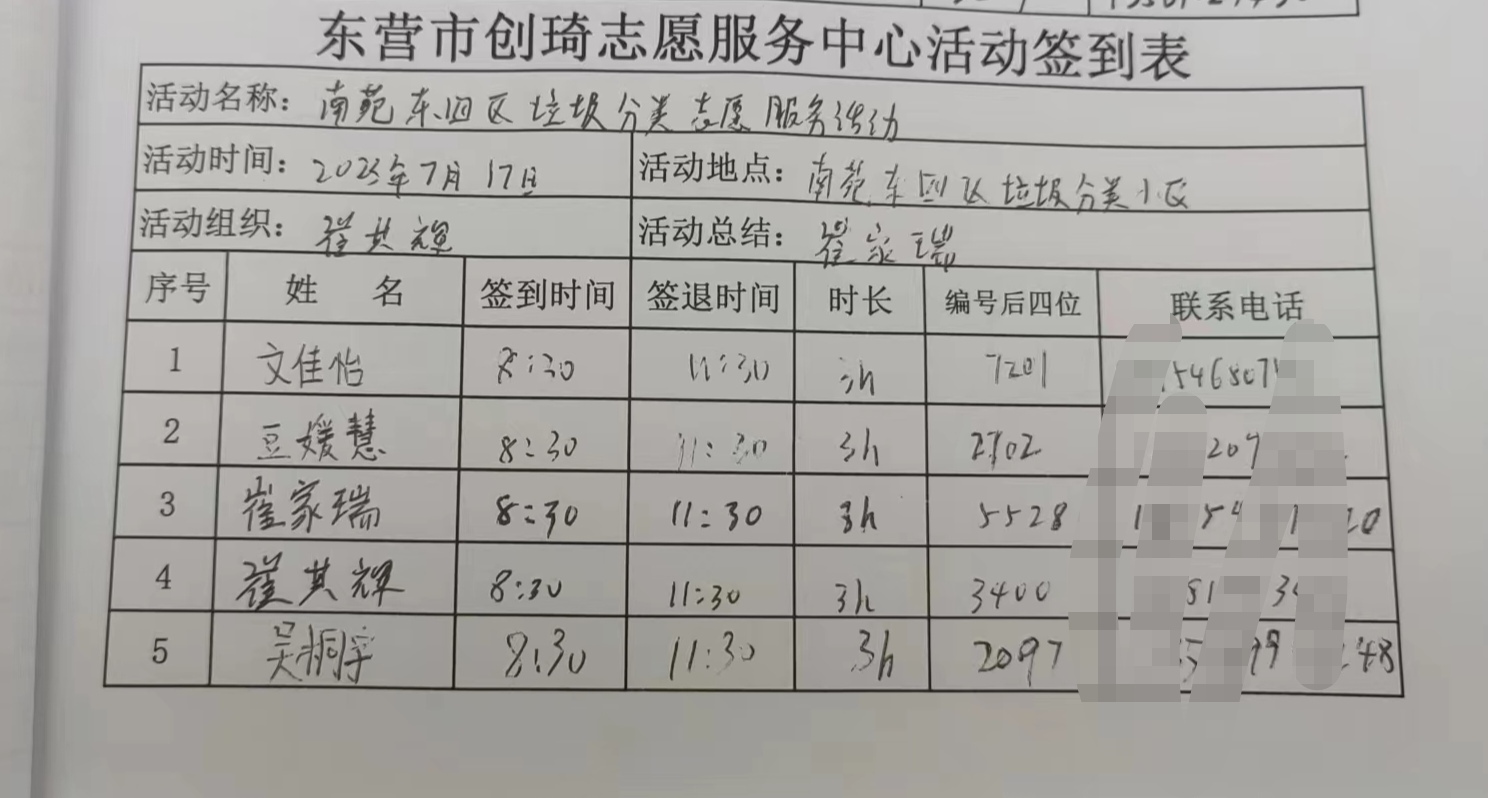 东营市创琦志愿服务中心活动签到表
活动名称: 南苑东四区垃圾分类志愿服务活动
活动时间: 2023年7月17日 活动地点: 南苑东四区垃圾分类小区
活动组织: 崔其辉 活动总结: 崔家瑞
序号 姓 名 签到时间 签退时间 时长 编号后四位 联系电话
1 文佳怡 8:30 11:30 3h 7201 1546807
2 豆媛慧 8:30 11:30 3h 2702 207
3 崔家瑞 8:30 11:30 3h 5528 1 54 1 20
4 崔其辉 8:30 11:30 3h 3400 81 3
5 吴桐宇 8:30 11:30 3h 2097 5 99 48